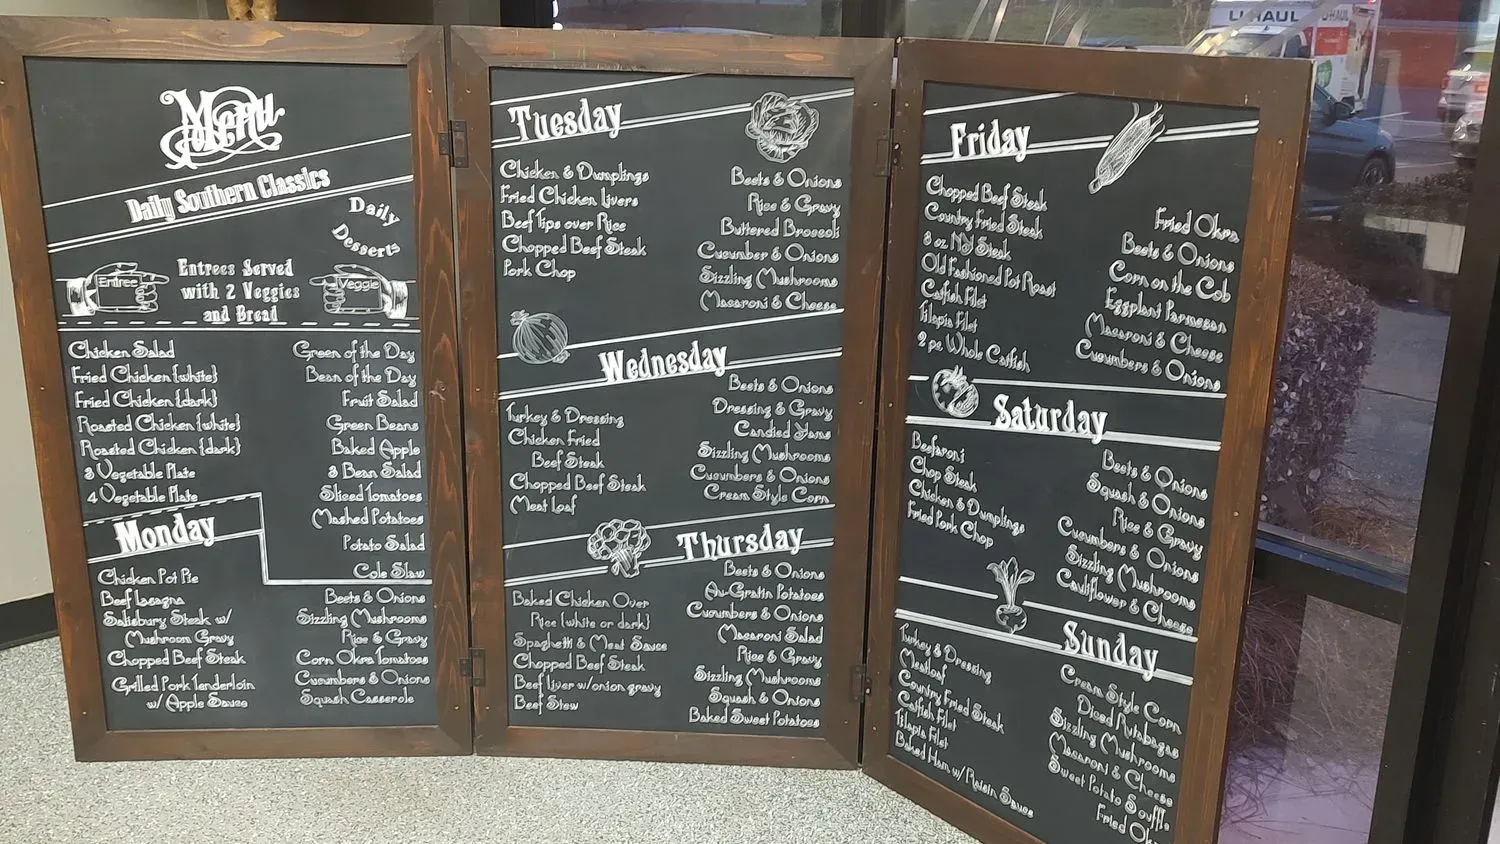 Menu
Daily Southern Classics
Daily
Desserts
Entrees Served
with 2 Veggies
and Bread
Entree
Veggie
Chicken Salad
Fried Chicken {white}
Fried Chicken {dark}
Roasted Chicken {white}
Roasted Chicken {dark}
3 Vegetable Plate
4 Vegetable Plate
Green of the Day
Bean of the Day
Fruit Salad
Green Beans
Baked Apple
3 Bean Salad
Sliced Tomatoes
Mashed Potatoes
Potato Salad
Cole Slaw
Monday
Chicken Pot Pie
Beef Lasagna
Salisbury Steak w/
Mushroom Gravy
Chopped Beef Steak
Grilled Pork Tenderloin
w/ Apple Sauce
Beets & Onions
Sizzling Mushrooms
Rice & Gravy
Corn Okra Tomatoes
Cucumbers & Onions
Squash Casserole
Tuesday
Chicken & Dumplings
Fried Chicken Livers
Beef Tips over Rice
Chopped Beef Steak
Pork Chop
Beets & Onions
Rice & Gravy
Buttered Broccoli
Cucumber & Onions
Sizzling Mushrooms
Macaroni & Cheese
Wednesday
Turkey & Dressing
Chicken Fried
Beef Steak
Chopped Beef Steak
Meat Loaf
Beets & Onions
Dressing & Gravy
Candied Yams
Sizzling Mushrooms
Cucumbers & Onions
Cream Style Corn
Thursday
Baked Chicken Over
Rice {white or dark}
Spaghetti & Meat Sauce
Chopped Beef Steak
Beef Liver w/onion gravy
Beef Stew
Beets & Onions
Au-Gratin Potatoes
Cucumbers & Onions
Macaroni Salad
Rice & Gravy
Sizzling Mushrooms
Squash & Onions
Baked Sweet Potatoes
Friday
Chopped Beef Steak
Country Fried Steak
8 oz NY Steak
Old Fashioned Pot Roast
Catfish Filet
Tilapia Filet
2 pc Whole Catfish
Fried Okra
Beets & Onions
Corn on the Cob
Eggplant Parmesan
Macaroni & Cheese
Cucumbers & Onions
Saturday
Beefaroni
Chop Steak
Chicken & Dumplings
Fried Pork Chop
Beets & Onions
Squash & Onions
Rice & Gravy
Cucumbers & Onions
Sizzling Mushrooms
Cauliflower & Cheese
Sunday
Turkey & Dressing
Meatloaf
Country Fried Steak
Catfish Filet
Tilapia Filet
Baked Ham w/ Raisin Sauce
Cream Style Corn
Diced Rutabagas
Sizzling Mushrooms
Macaroni & Cheese
Sweet Potato Souffle
Fried Ok
U-HAUL